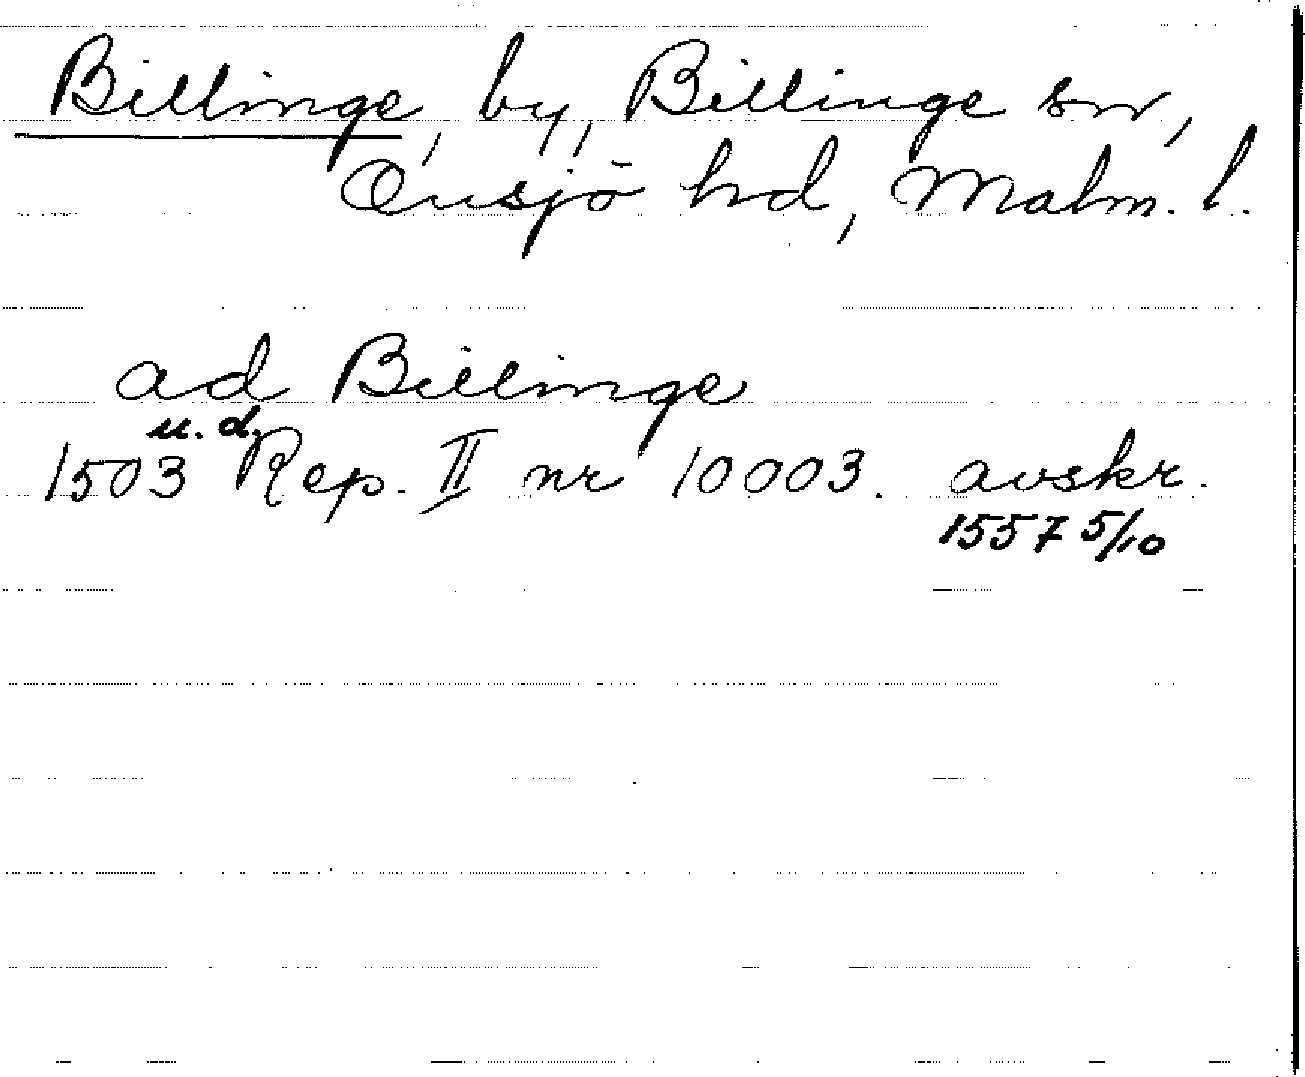 Billinge, by, Billinge sn,
Onsjö hd, Malm. l.
ad Billinge
u. d.
1503 Rep. II nr 10003. avskr.
1557 5/10